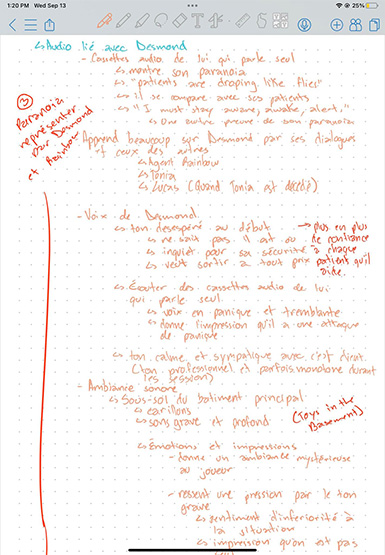 1:20 PM Wed Sep 13
25%
↳ Audio lié avec Desmond
- Cassettes audio de lui qui parle seul
↳ montre son paranoia
↳ "patients are droping like flies"
↳ il se compare avec ses patients
↳ "I must stay aware, awake, alert."
↳ Une autre preuve de son paranoia
③ Paranoia
représenter
par Desmond
et Rainbow
- Apprend beaucoup sur Desmond par ses dialogues
et ceux des autres
↳ Agent Rainbow
↳ Tonia
↳ Lucas (Quand Tonia est décédé)
- Voix de Desmond
↳ ton désespéré au début
↳ ne sait pas il est où
↳ inquiet pour sa sécurité
↳ veut sortir à tout prix
→ plus en plus
de confiance
à chaque
patient qu'il
aide.
↳ Écouter des cassettes audio de lui
qui parle seul.
↳ voix en panique et tremblante
↳ donne l'impression qu'il a une attaque
de panique
↳ ton calme et sympatique avec
(ton professionnel et parfois monotone durant
les session)
- Ambiance sonore
↳ Sous-sol du batiment principal
↳ carillons
↳ sons grave et profond
(Toys in the
Basement)
↳ Émotions et impressions
- donne un ambiance mystérieuse
au joueur
- ressent une pression par le ton
grave
↳ sentiment d'inferiorité à
la situation
↳ impression qu'on est pas